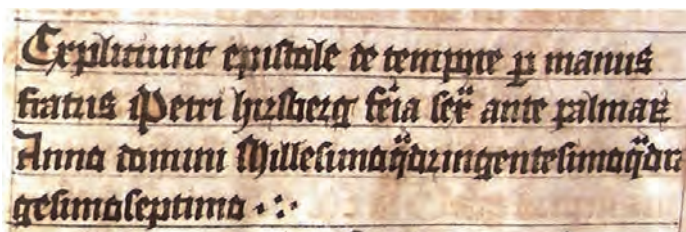 Expliciunt epistole de tempore ꝑ manus
fratris Petri hirsberg fe͛ia sex̃ ante palmaꝝ
Anno domini Millesimoq̈dringentesimoq̈dra
gesimoseptimo ·:·